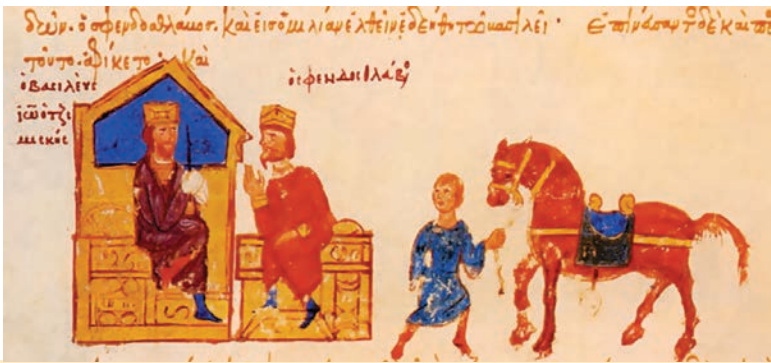 ὁ σφενδοσθλάβος. καὶ εἰς ὁμιλίαν ἐλθεῖν ἐδεῖτο τῶ βασιλεῖ · δὲ καὶ
τοῦτο. ἀφίκετο. καὶ
ὁ βασιλεὺς
ἰω ὁ τζι
μισκὸς
ὁ σφενδοσλάβος